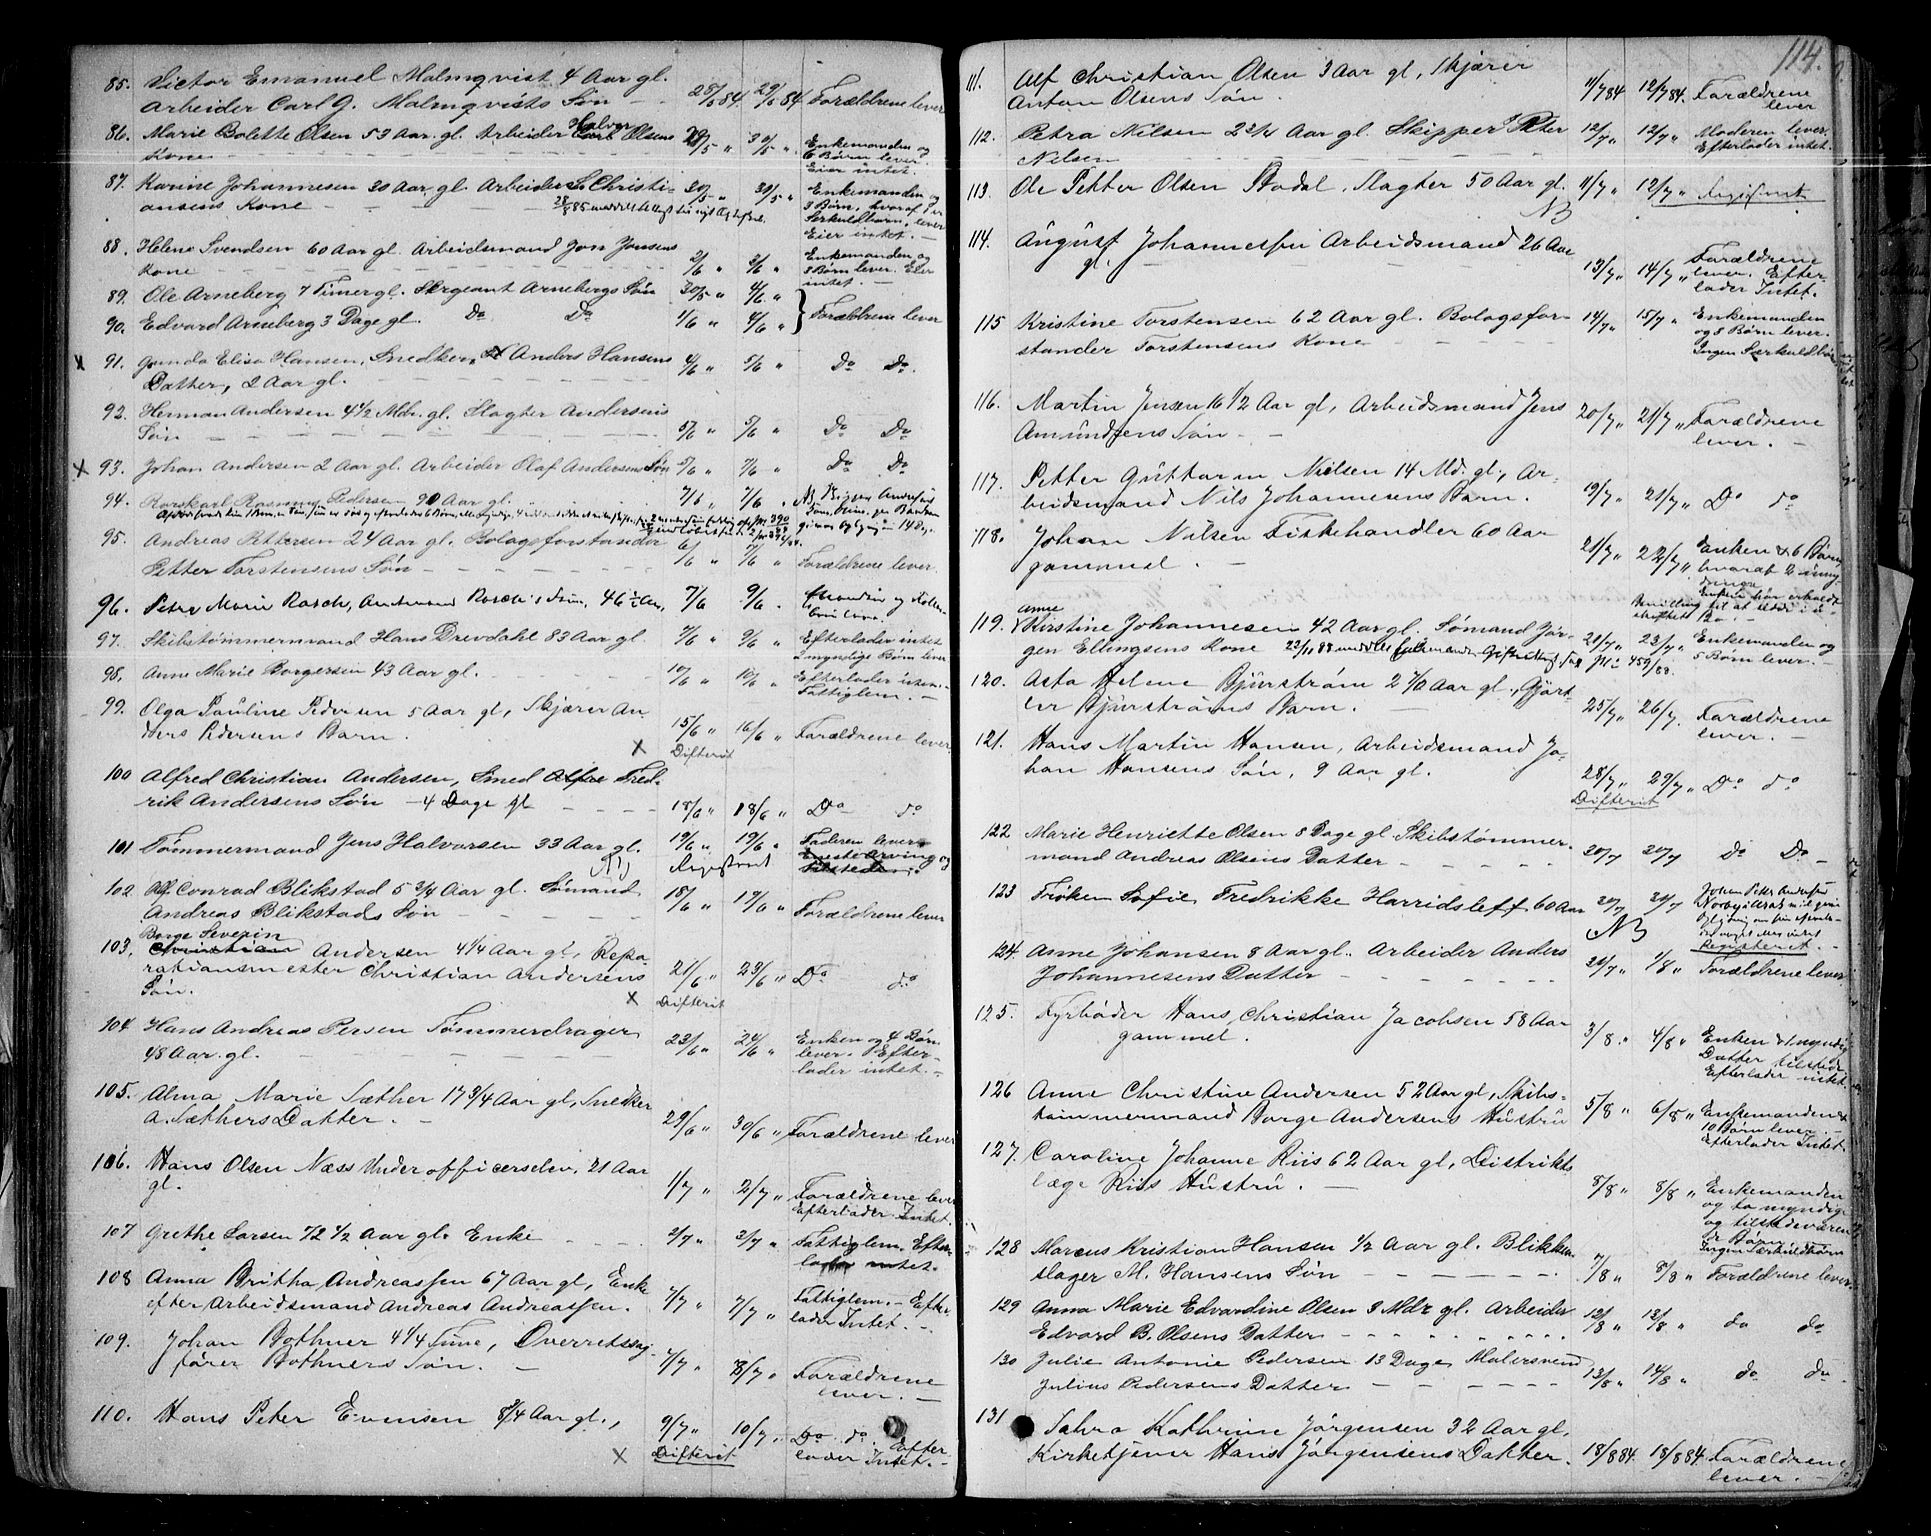 114.
85. Victor Emanuel Malmqvist 4 Aar gl.
Arbeider Carl G. Malmqvists Søn 28/5 84 29/5 84 Forældrene lever
86. Marie Bolette Olsen 53 Aar. gl. Arbeider Halvor Olsens
Kone 30/5 " Enkemanden og
6 Børn lever.
Eier intet.
87. Karine Johannesen 30 Aar gl. Arbeider S. Christi-
ansens Kone 30/5 " 30/5 " Enkemanden og
3 Børn, hvoraf 1 er
Særkuldbarn, lever
Eier intet. -
88. Helene Svendsen 60 Aar gl. Arbeidsmand Jon Jonsens
Kone 2/6 " 2/6 " Enkemanden og
3 Børn lever. Eier
intet. -
89. Ole Arneberg 7 Timer gl. Sergeant Arnebergs Søn 30/5 " 4/6 "
90. Edvard Arneberg 3 Dage gl. Do Do 1/6 " 4/6 " Forældrene lever
x 91. Gunda Elise Hansen, Snedker Anders Hansens
Datter, 2 Aar gl. 4/6 " 5/6 " Do Do.
92. Herman Andersen 4 1/2 Mdr. gl. Slagter Andersens
Søn 5/6 " 5/6 " Do Do
x 93. Johan Andersen 2 Aar gl. Arbeider Olaf Andersens Søn 5/6 " 7/6 " Do Do
94. Rasmus Pedersen 90 Aar gl. 7/6 " 7/6 "
95. Andreas Pettersen 24 Aar gl. Bolagsforstander
Petter Torstensens Søn 6/6 " 7/6 " Forældrene lever.
96. Petra Marie Rasch, 46 1/2 Aar, 7/6 9/6.
97. Skibstømmermand Hans Drevdahl 83 Aar gl. 7/6 " 9/6 " Efterlader intet
2 myndige Børn lever
98. Anne Marie Borgersen 43 Aar gl. 10/6 " 10/6 " Efterlader intet.
Fattiglem. -
99. Olga Pauline Pedersen 5 Aar gl, Skjærer An
ders Pedersens Barn. 15/6 " 16/6 " Forældrene lever.
x Difterit
100 Alfred Christian Andersen, Smed Alfre Fred-
rik Andersens Søn - 4 Dage gl 18/6 " 18/6 " Do do
101 Tømmermand Jens Halvorsen 33 Aar gl. 19/6 " 19/6 " Faderen lever
Registreret Enestearving og
tilstede.
102. Alf Conrad Blikstad 5 3/4 Aar gl. Sømand
Andreas Blikstads Søn 18/6 " 19/6 " Forældrene lever
Borge Severin
103. Christian Andersen 4 1/4 Aar gl, Repa-
rationsmester Christian Andersens
Søn. 21/6 " 23/6 " Do do
x Difterit
104. Hans Andreas Persen Tømmerdrager
48 Aar. gl. 23/6 " 24/6 " Enken og 4 Børn
lever. Efter-
lader intet. -
105. Alma Marie Sæther 17 3/4 Aar gl, Snedker
A. Sæthers Datter. - 29/6 " 30/6 " Forældrene lever
106. Hans Olsen Næss Underofficerselev. 21 Aar
gl. 1/7 " 2/7 " Forældrene lever
Efterlader Intet.
107 Grethe Larsen 72 1/2 Aar gl. Enke 2/7 " 3/7 " Fattiglem. Efter-
lader intet.
108 Anna Britha Andreassen 67 Aar gl, Enke
efter Arbeidsmand Andreas Andreassen. 4/7 " 7/7 " Fattiglem. - Efter-
lader Intet. -
109. Johan Bothner 4 1/4 Time, Overretssag-
fører Bothners Søn. - 7/7 " 8/7 " Forældrene
lever. -
110. Hans Peter Evensen 8/4 Aar gl., 9/7 " 10/7 " Do do. Efter
lader Intet. -
x Difterit
111. Alf Christian Olsen 3 Aar gl, Skjærer
Anton Olsens Søn. 11/7 84 12/7 84. Forældrene
lever
112. Petra Nilsen 2 3/4 Aar gl. Skipper Peter
Nilsen 12/7 " 12/7 " Moderen lever.
Efterlader intet.
113. Ole Petter Olsen Bodal, Slagter 50 Aar gl. 11/7 " 12/7 " Registreret
NB
114. August Johannessen Arbeidsmand 26 Aar
gl. 13/7 " 14/7 " Forældrene
lever. Efter-
lader Intet. -
115 Kristine Torstensen 62 Aar gl. Bolagsfor-
stander Torstensens Kone 14/7 " 15/7 " Enkemanden
og 8 Børn lever.
Ingen Særkuldbørn
116. Martin Jensen 16 1/2 Aar gl, Arbeidsmand Jens
Amundsens Søn. - 20/7 " 21/7 " Forældrene
lever. -
117. Petter Guttorm Nielsen 14 Md. gl, Ar-
beidsmand Nils Johannesens Barn. 19/7 " 21/7 " Do do
118. Johan Nilsen Fiskehandler 60 Aar
gammel. - 21/7 " 22/7 " Enken & 6 Børn
hvoraf 2 umyn-
dige
Enken har erholdt
Bevilling til at sidde i u-
skiftet Bo. -
Anne
119. Kirstine Johannesen 42 Aar gl. Sømand Jør-
gen Ellingsens Kone 21/7 " 23/7 " Enkemanden og
5 Børn lever.
120. Asta Helene Bjurstrøm 2 1/2 Aar gl, Gjørt-
ler Bjurstrøms Barn. - 25/7 " 26/7. Forældrene
lever. -
121. Hans Martin Hansen, Arbeidsmand Jo-
han Hansens Søn, 9 Aar gl. 28/7 " 29/7 " Do do
Difterit
122 Marie Henriette Olsen 8 Dage gl Skibstømmer-
mand Andreas Olsens Datter 20/7 20/7 Do Do -
123 Frøken Sofie Fredrikke Harridsleff 60 Aar
NB
Registreret. -
124. Anne Johansen 8 Aar gl. Arbeider Anders
Johannesens Datter 1/8 " Forældrene lever.
125. Fyrbøder Hans Christian Jacobsen 58 Aar
gammel. 3/8. " 4/8 " Enken & 1 myndig
Datter tilstede
Efterlader intet.
126 Anne Christine Andersen 52 Aar gl, Skibs-
tømmermand Borge Andersens Hustru 5/8 " 6/8 " Enkemanden &
10 Børn lever. -
Efterlader Intet.
127. Caroline Johanne Riis 62 Aar gl, Distrikts
læge Riis Hustru. - 8/8 " 8/8 " Enkemanden
og to myndige
og tilstedeværen
de Børn.
Ingen Særkuldbørn
128 Marcus Kristian Hansen 1/2 Aar gl. Blikken-
slager M. Hansens Søn 7/8 " 8/8 " Forældrene lever.
129 Anna Marie Edvardine Olsen 3 Mdr gl. Arbeider
Edvard B. Olsens Datter 12/8 " 13/8. " do do
130 Julie Antonie Pedersen 13 Dage, Malersvend
Julius Pedersens Datter 13/8 " 14/8 " do do
131 Tahra Kathrine Jørgensen 32 Aar gl,
Kirketjener Hans Jørgensens Datter. 18/8 84. 18/8 84. Forældrene
lever. -